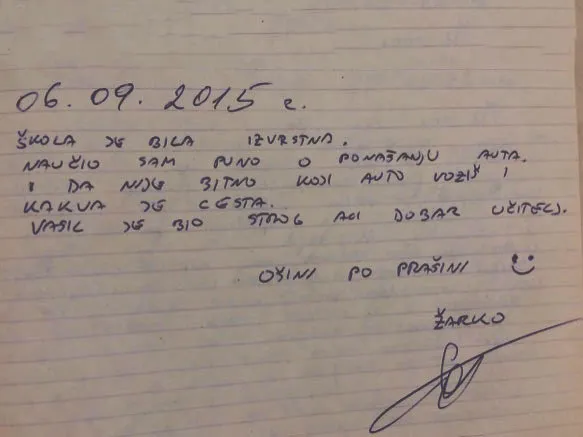 06. 09. 2015 г.
ŠKOLA JE BILA IZVRSTNA.
NAUČIO SAM PUNO O PONAŠANJU AUTA.
I DA NIJE BITNO KOJI AUTO VOZIŠ I
KAKVA JE CESTA.
VASIL JE BIO STROG ALI DOBAR UČITELJ.
OŽINI PO PRAŠINI :)
ŽARKO